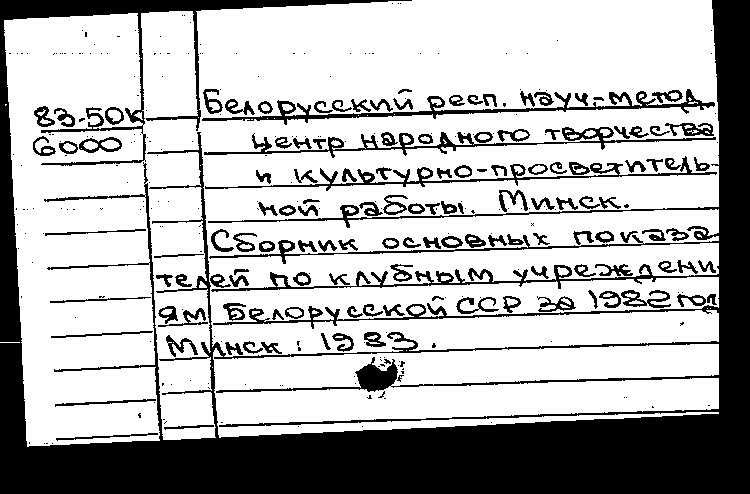 Белорусский респ. науч.-метод.
83-50к
6000
центр народного творчества
и культурно-просветитель-
ной работы. Минск.
Сборник основных показа-
телей по клубным учреждени-
ям Белорусской ССР за 1982 год
Минск : 1983.